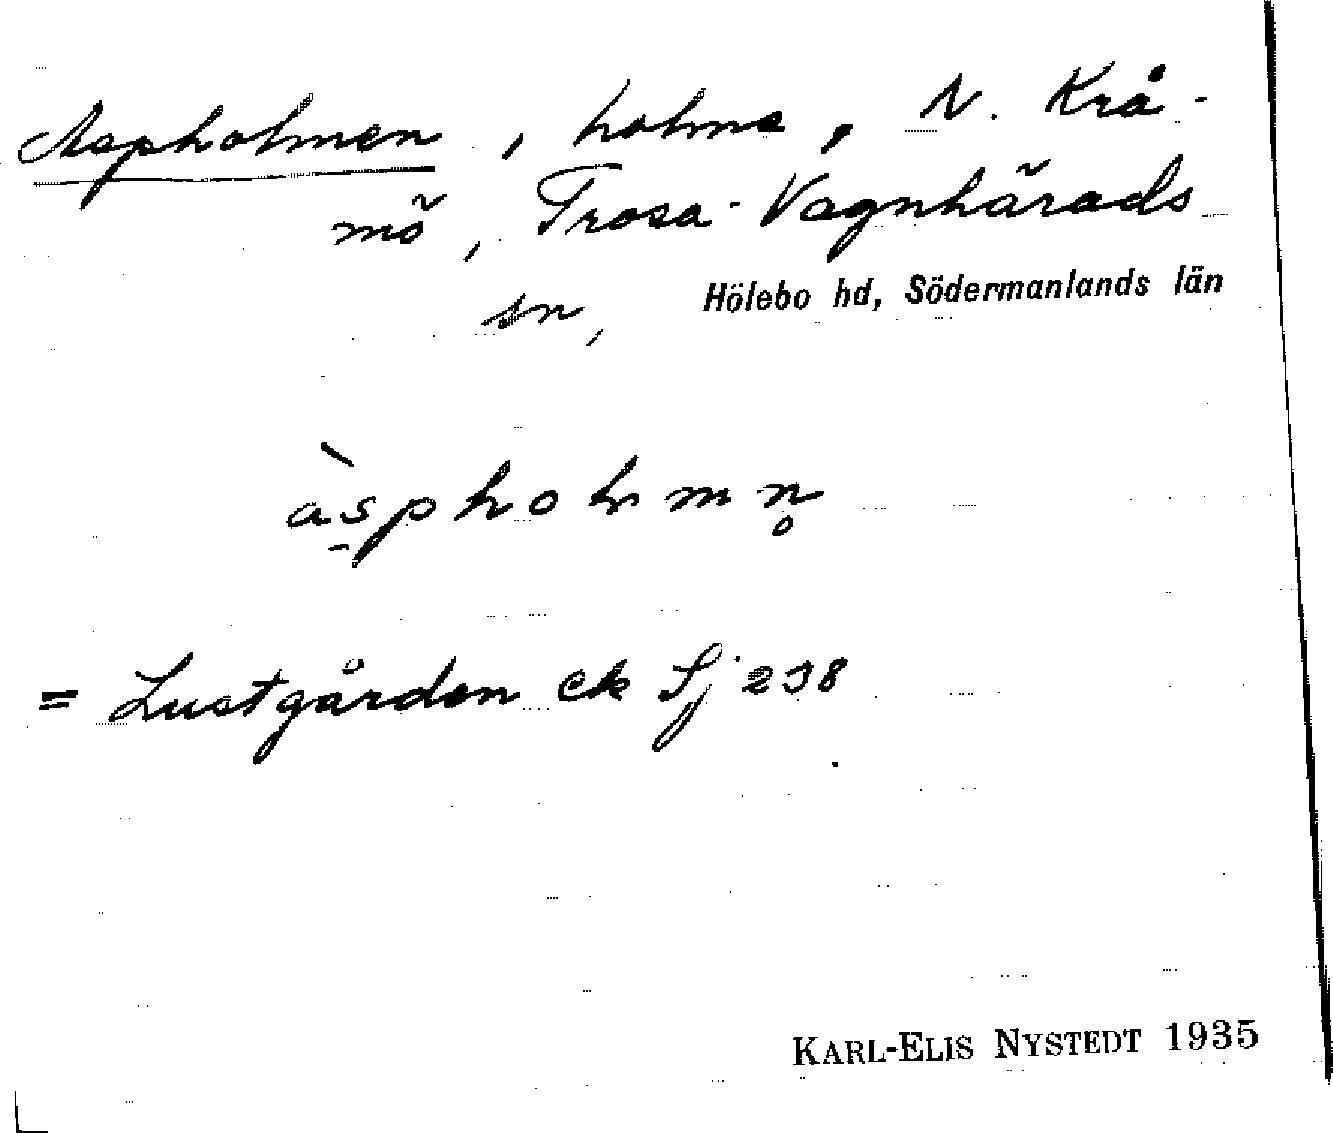 Aspholmen, holme, N. Krå-
mö, Trosa-Vagnhärads
sn, Hölebo hd, Södermanlands län
àspholmn̥
= Lustgården ek Sj 238
KARL-ELIS NYSTEDT 1935